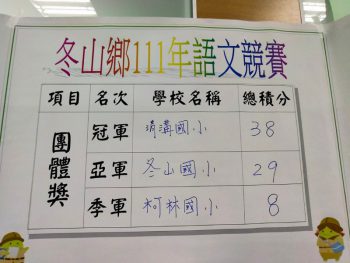 冬山鄉111年語文競賽
項目 名次 學校名稱 總積分
團體獎
冠軍 清溝國小 38
亞軍 冬山國小 29
季軍 柯林國小 8